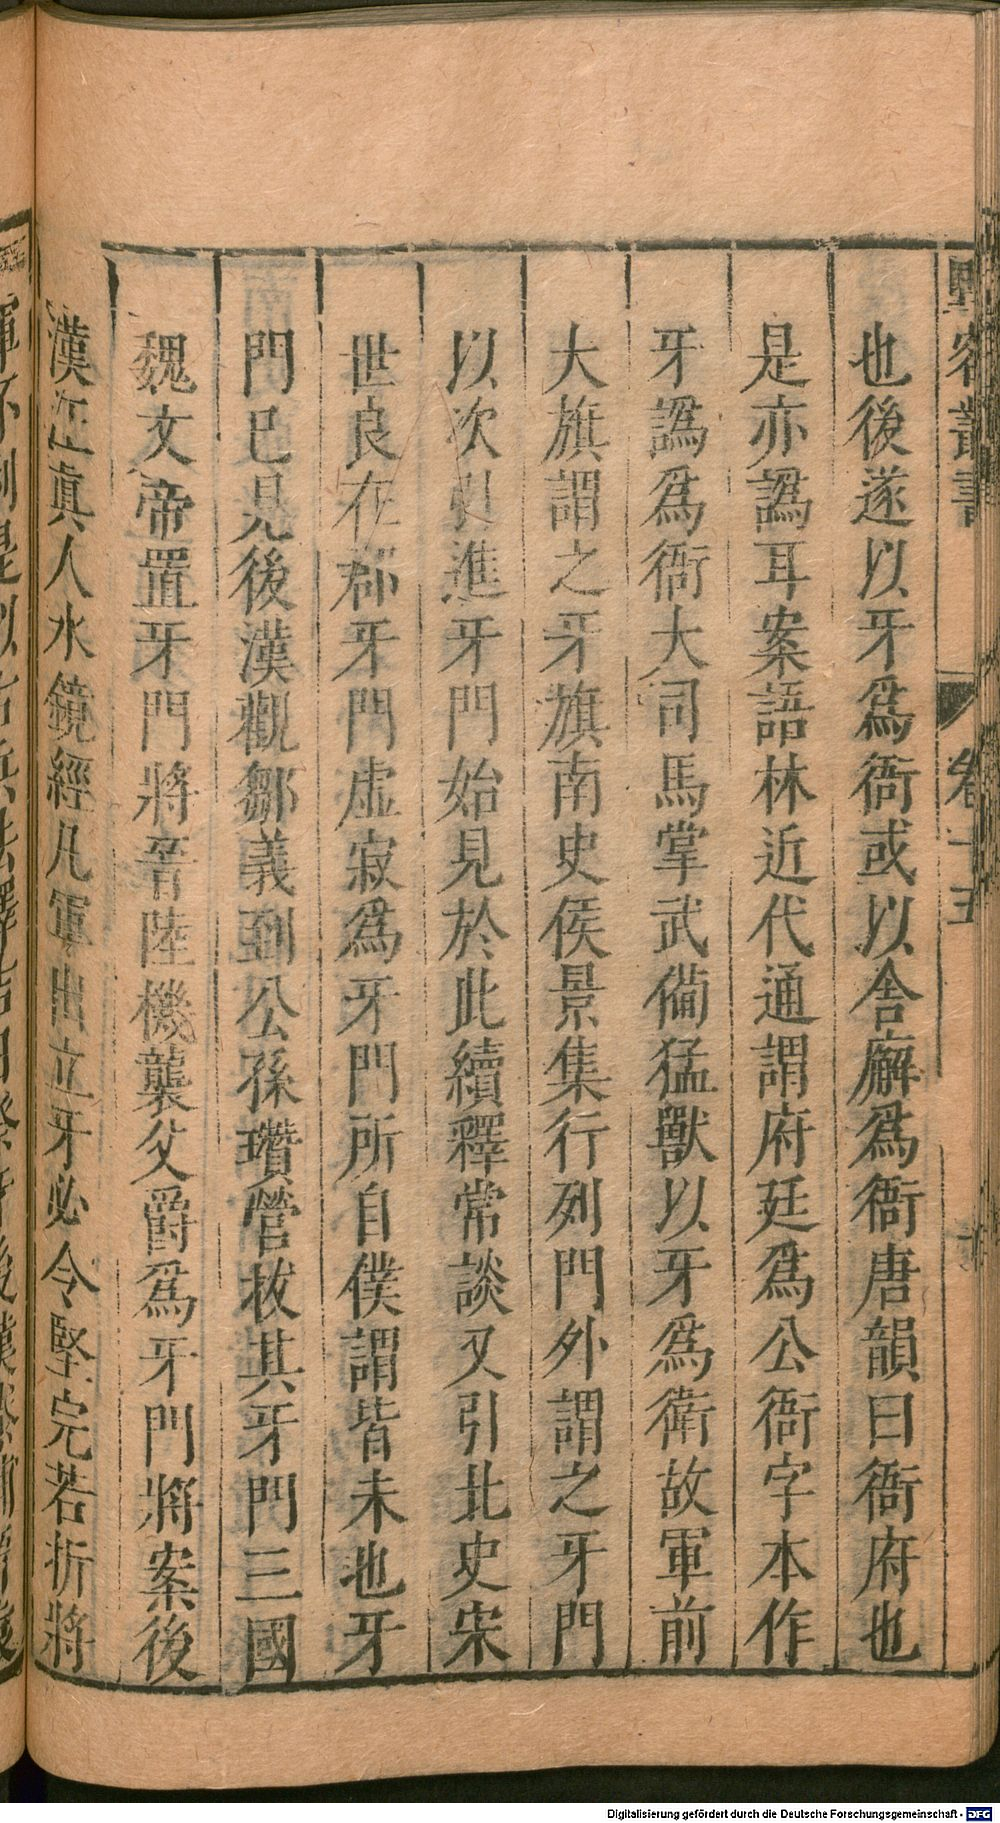 野客叢書
卷十五
也後遂以牙爲衙或以舍廨爲衙唐韻曰衙府也
是亦譌耳案語林近代通謂府廷爲公衙字本作
牙譌爲衙大司馬掌武備猛獸以牙爲衛故軍前
大旗謂之牙旗南史侯景集行列門外謂之牙門
以次引進牙門始見於此續釋常談又引北史宋
世良在郡牙門虛寂爲牙門所自僕謂皆未也牙
門已見後漢觀鄒義到公孫瓚營拔其牙門三國
魏文帝置牙門將晉陸機襲父爵爲牙門將案後
漢江眞人水鏡經凡軍出立牙必令堅完若折將
Digitalisierung gefördert durch die Deutsche Forschungsgemeinschaft - DFG